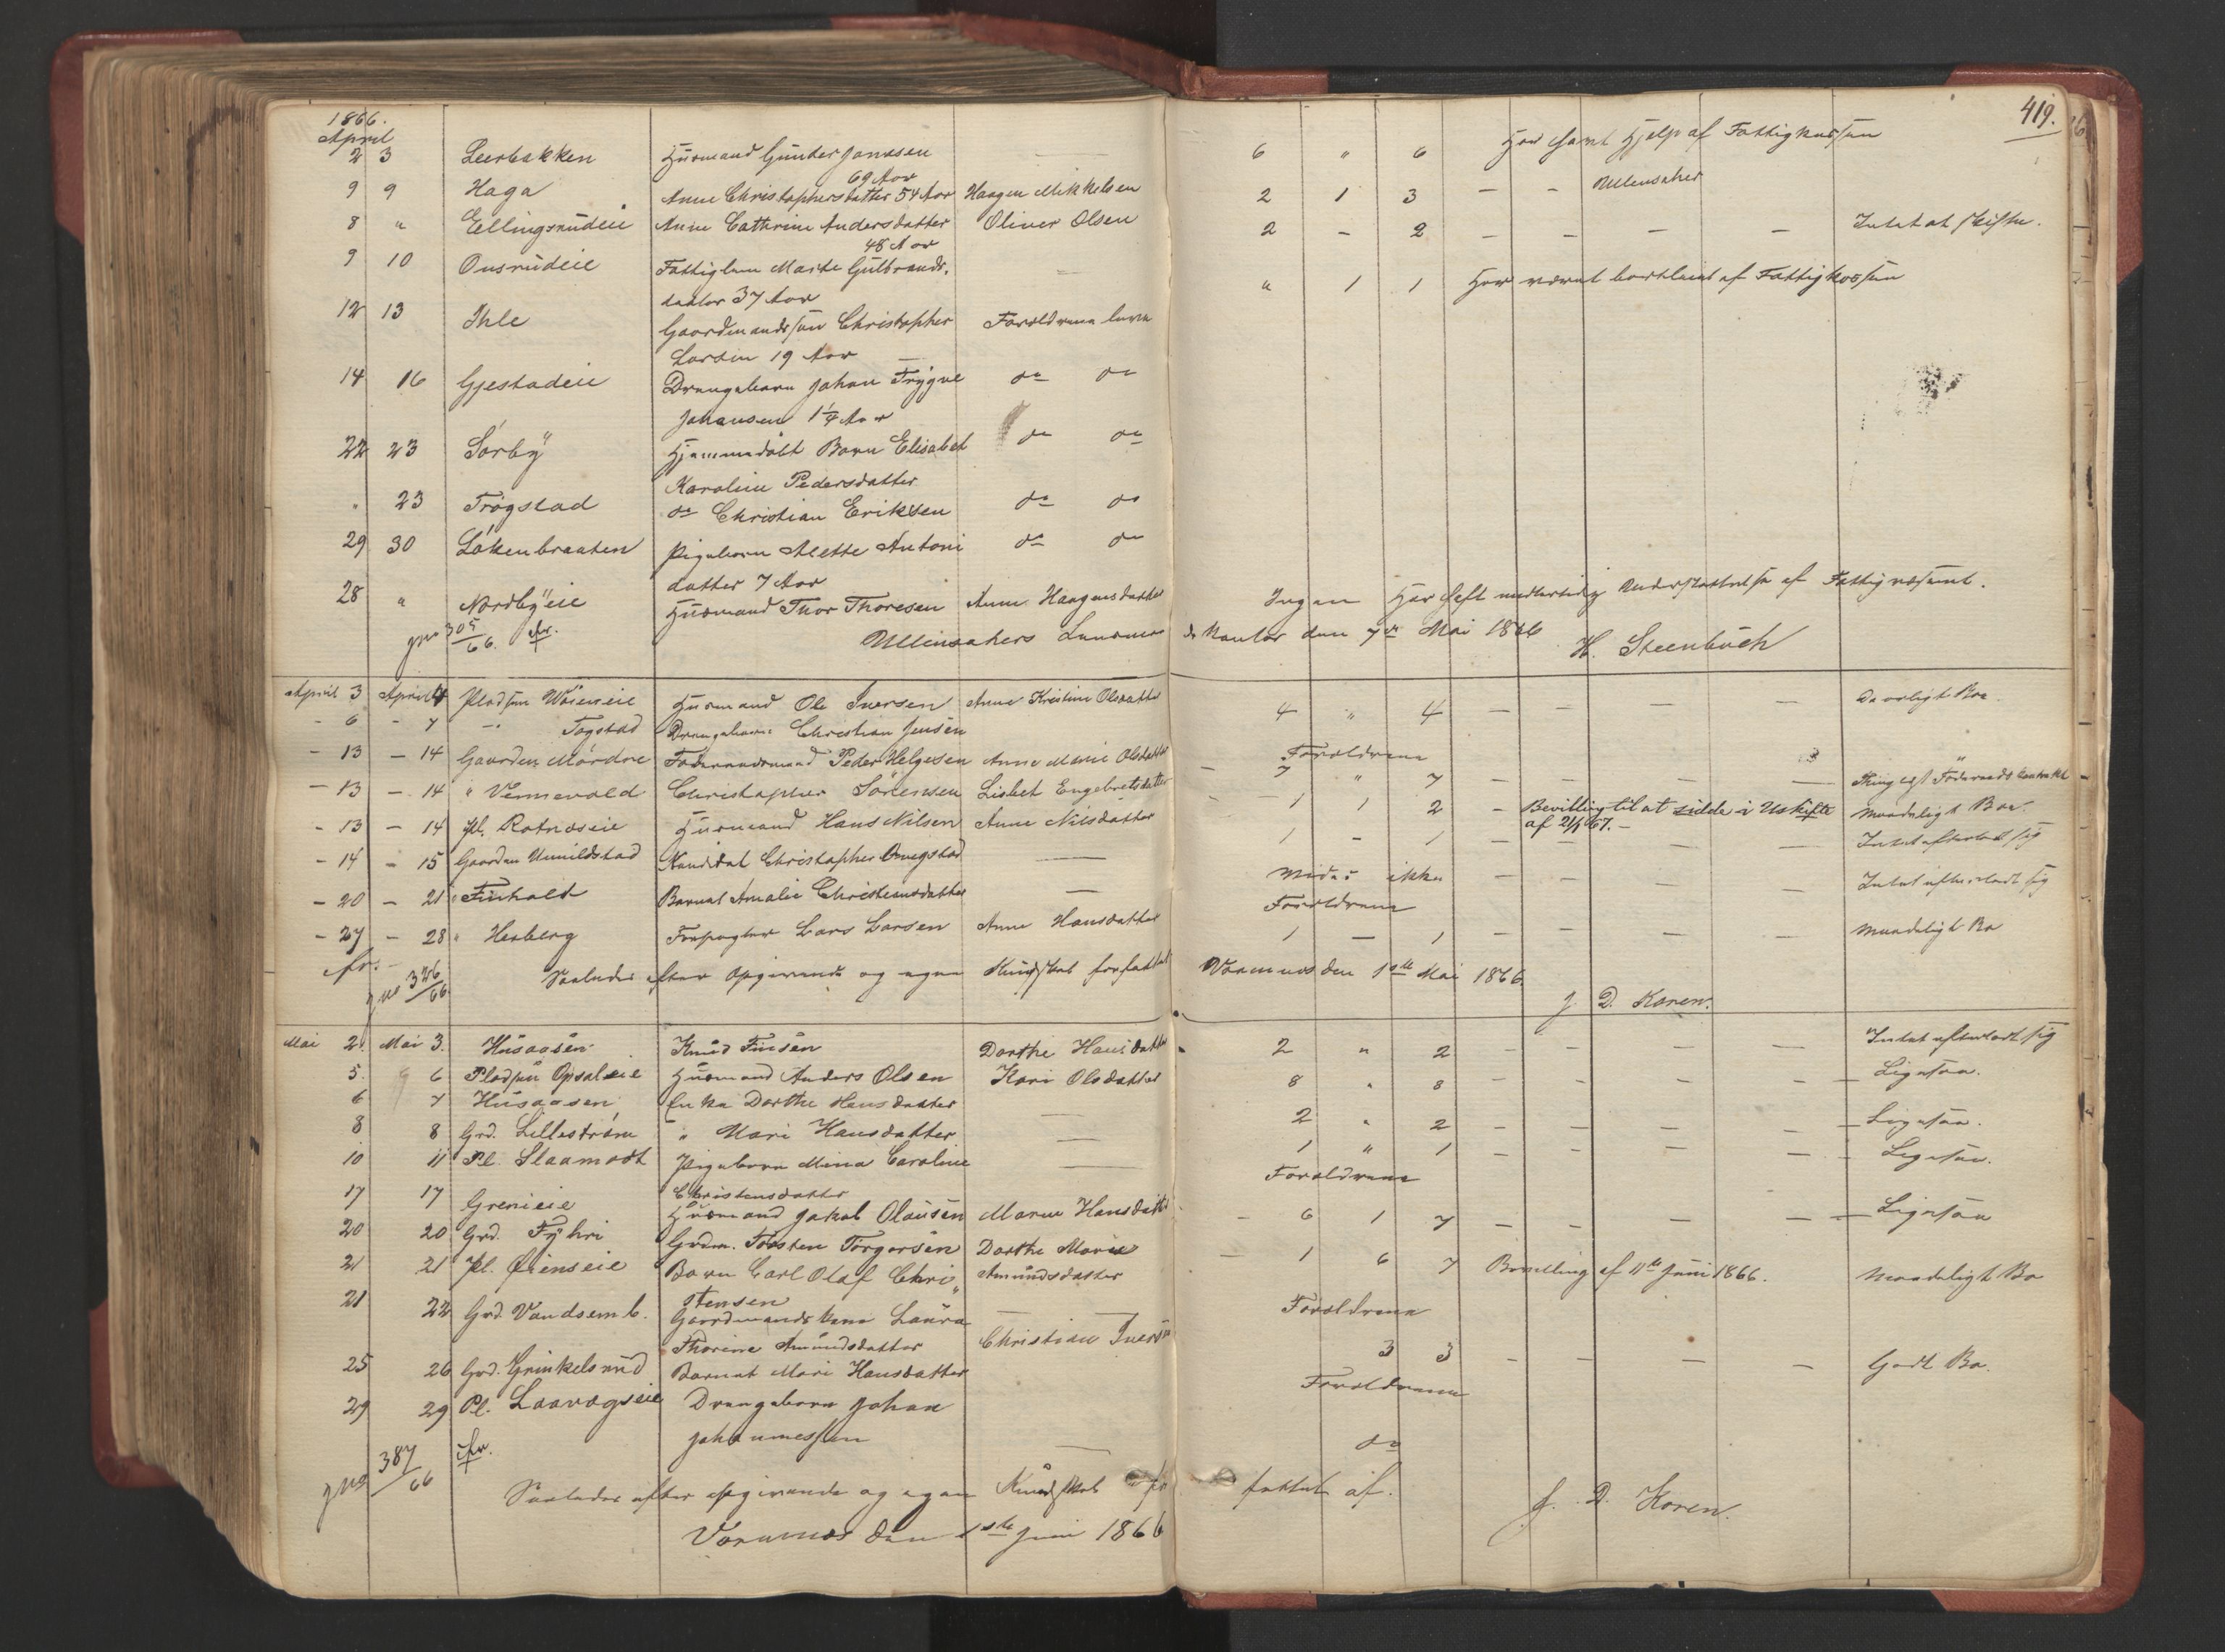 1866.
April
419.
2 3 Leerbakken Huusmand Gunder Jonssen — — 6 " 6 Har havt Hjelp af Fattigkassen
69 Aar
9 9 Haga Anne Christophersdatter 54 Aar Haagen Mikkelsen 2 1 3 — - Ullensaker
8 " Ellingsrudeie Anne Cathrine Andersdatter Oliver Olsen 2 — 2 — — — — Intet at skifte.
48 Aar
9 10 Onsrudeie Fattiglem Marte Gulbrands- — " 1 1 Har været bortleiet af Fattigkassen
datter 37 Aar
12 13 Ihle Gaardmandssøn Christopher Forældrene leve
Larsen 19 Aar —
14 16 Gjestadeie Drengebarn Johan Trygve do do
Johansen 1¼ Aar
22 23 Sørby Hjemmedøbt Barn Elisabet do do
Karoline Pedersdatter
" 23 Trøgstad do Christian Eriksen do do
29 30 Løkenbraaten Pigebarn Alette Antoni do do
datter 7 Aar
28 " Nordbyeie Huusmand Thor Thoresen Anne Haagensdatter Ingen Har havt midlertidig Understøttelse af Fattigvæsenet.
Jno 305/66. Ullensakers Lensmands Kontor den 7de Mai 1866 H. Steenbuch
April 3 April 4 Pladsen Woieneie Huusmand Ole Iversen Anne Kristine Olsdatter 4 " 4 — — — — Daarligt Bo.
- 6 - 7 —"— Togstad Drengebarn Christian Jensen Forældrene
- 13 - 14 Gaarden Mørdre Føderaadsmand Peder Helgesen Anne Marie Olsdatter — 7 " 7 — — — — Thinglæst Føderaadskontrakt
- 13 - 14 " Vennevold Christopher Sørensen Lisbet Engebretsdatter — 1 1 2 — Bevilling til at sidde i Uskifte Maadeligt Bo.
af 21/1 67.-
- 13 - 14 Pl. Rotnæseie Huusmand Hans Nilsen Anne Nilsdatter 1 — 1 — — — — Intet efterladt sig
- 14 - 15 Gaarden Kandidat Christopher — Vides ikke — — — — Intet efterladt sig
- 20 - 21 " Finhold Barnet Amalie Christiansdatter — Forældrene
- 27 - 28 " Herberg Forpagter Lars Larsen Anne Hansdatter 1 — 1 — — — — Maadeligt Bo
Jno 326/66 Saaledes efter Opgivende og egen Kundskab forfattet Vormnæs den 1ste Mai 1866
J. D. Koren.
Mai 2. Mai 3. Husaasen Knud Finsen Dorthe Hansdatter 2 " 2 — — — — Intet efterladt sig
5. 6 Pladsen Opsaleie Huusmand Anders Olsen Kari Olsdatter 8 " 8 — — — — Ligesaa.
6 7 Husaasen Enke Dorthe Hansdatter — 2 " 2 — — — — Ligesaa.
8 8 Grd. Lillestrøm " Mari Hansdatter — 1 " 1 — — — — Ligesaa.
10 11 Pl. Slaamodt Pigebarn Mina Caroline — Forældrene
Christensdatter
17 17 Grenieie Huusmand Jakob Olausen Maren Hansdatter — 6 1 7 — — — — Ligesaa
20 20 Grd. Fyhri Grdm. Torsten Torgersen Dorthe Marie — 1 6 7 Bevilling af 11te Juni 1866. Maadeligt Bo
21 21 Pl. Øienseie Barn Carl Olaf Chri- Amundsdatter Forældrene
stensen
21 22 Grd. Vandsemb. Gaardmandskone Laura
Thorine Amundsdatter Christian Iversen 3 3 — — — — Godt Bo.
25 26 Grd. Grinkelsrud Barnet Mari Hansdatter Forældrene
29 29 Pl. Laavægseie Drengebarn Johan
Johannessen — do
Jno 387/66
Saaledes efter Opgivende og egen Kundskab forfattet af. J. D. Koren.
Vormnæs den 1ste Juni 1866